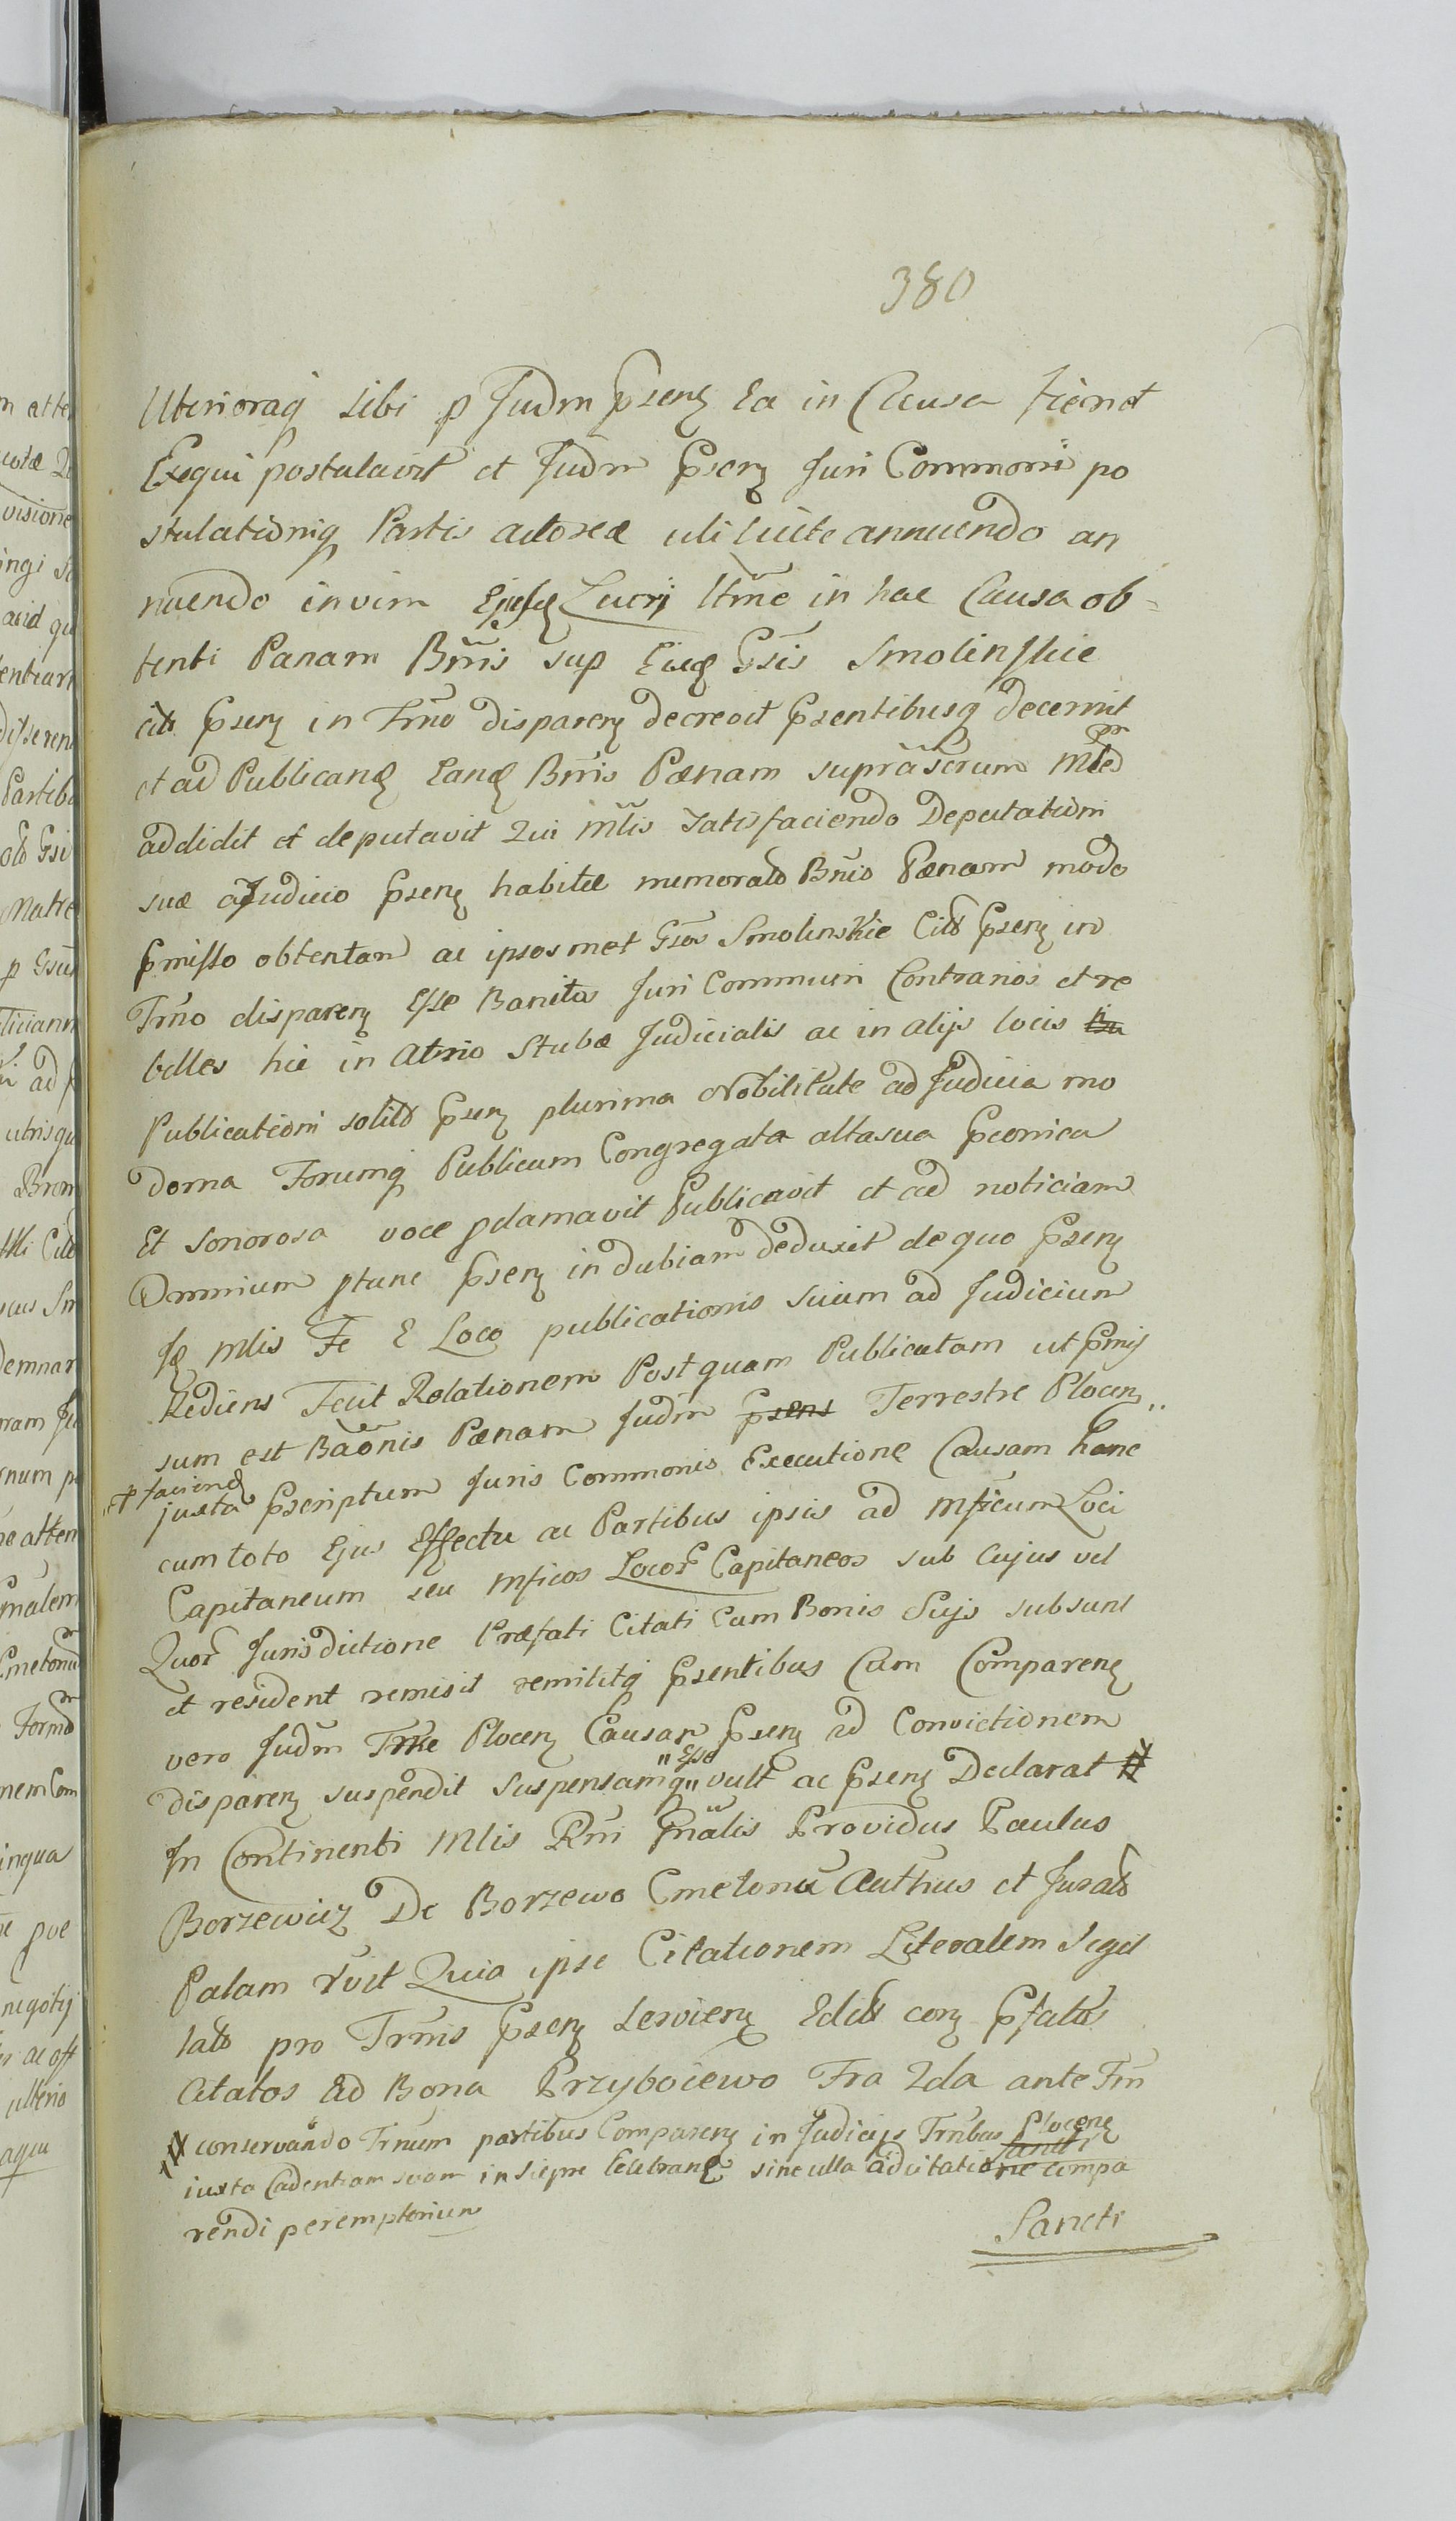 380
Ulterioraq sibi p Judm Psenz Ea in Causa fieri et
Exequi postulavit et Judm Psenz Juri Communi po
stulationiq Partis actoreæ uti licite annuendo an
nuendo in vim Ejusq Lucri Itme in hac Causa ob=
tenti Pænam Bnnis sup Eisd Gsis Smolinskie
citis Psenz in Trno disparenz decrevit Psentibusq decernit
et ad Publicand Eand Bnnis Pænam suprascrum Mlem
addidit et deputavit Qui Mlis satisfaciendo Deputationi
suæ a Judicio Psenz habitæ memorato Bnis Pænam modo
Pmisso obtentam ac ipsosmet Gsos Smolinskie Citos Psenz in
Trno disparenz Esse Banitos Juri Communi Contrarios et re
belles hic in Atrio Stubæ Judicialis ac in alijs locis
Publicationi solitis Psenz plurima Nobilitate ad Judicia mo
derna Forumq Publicum Congregata alta sua Pconica
Et Sonorosa voce pclamavit Publicavit et ad noticiam
Omnium ptunc Psenz indubiam deduxit de quo Psenz
Id Mlis Fe E Loco publicationis suium ad Judicium
Rediens Fecit Relationem Postquam Publicatam ut Pmis
sum est Baonis Pænam Judm Psens Terrestre Plocenz
# faciend
juxta Pscriptum Juris Communis Executione Causam hanc
cum toto Ejus Effectu ac Partibus ipsis ad Mficum Loci
Capitaneum seu Mficos Locor Capitaneos sub Cujus vel
Quor Jurisdictione Præfati Citati Cum Bonis Suijs subsunt
et resident remisit remititq Psentibus Cum Comparenz
vero Judm Trrre Plocenz Causam Psenz ad Convictionem
disparenz suspendit suspensamq " Esse " vult ac Psenz Declarat #
In Continenti Mlis Rni Gnalis Providus Paulus
Borzewicz De Borzewo Cmetonu Authus et Jurats
Palam rvit Quia ipse Citationem Literalem Sigil
lato pro Trmis Psenz servienz Edito conz Pfatos
Citatos Ad Bona Przyboiewo Fra 2da ante Frn
# conservando Trnum partibus Comparenz in Judicijs Trribus Plocenz
iusta Cadentiam suam in Siepre Celebranz sine ulla adcitatione compa
rendi peremptorium
Sancti